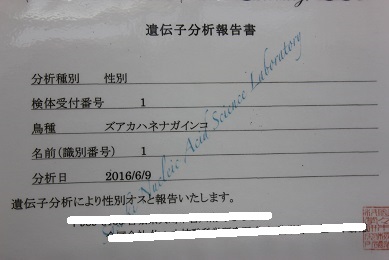 遺伝子分析報告書
分析種別 性別
検体受付番号 1
鳥種 ズアカハネナガインコ
名前(識別番号) 1
分析日 2016/6/9
遺伝子分析により性別オスと報告いたします。
Nucleic Acid Science Laboratory